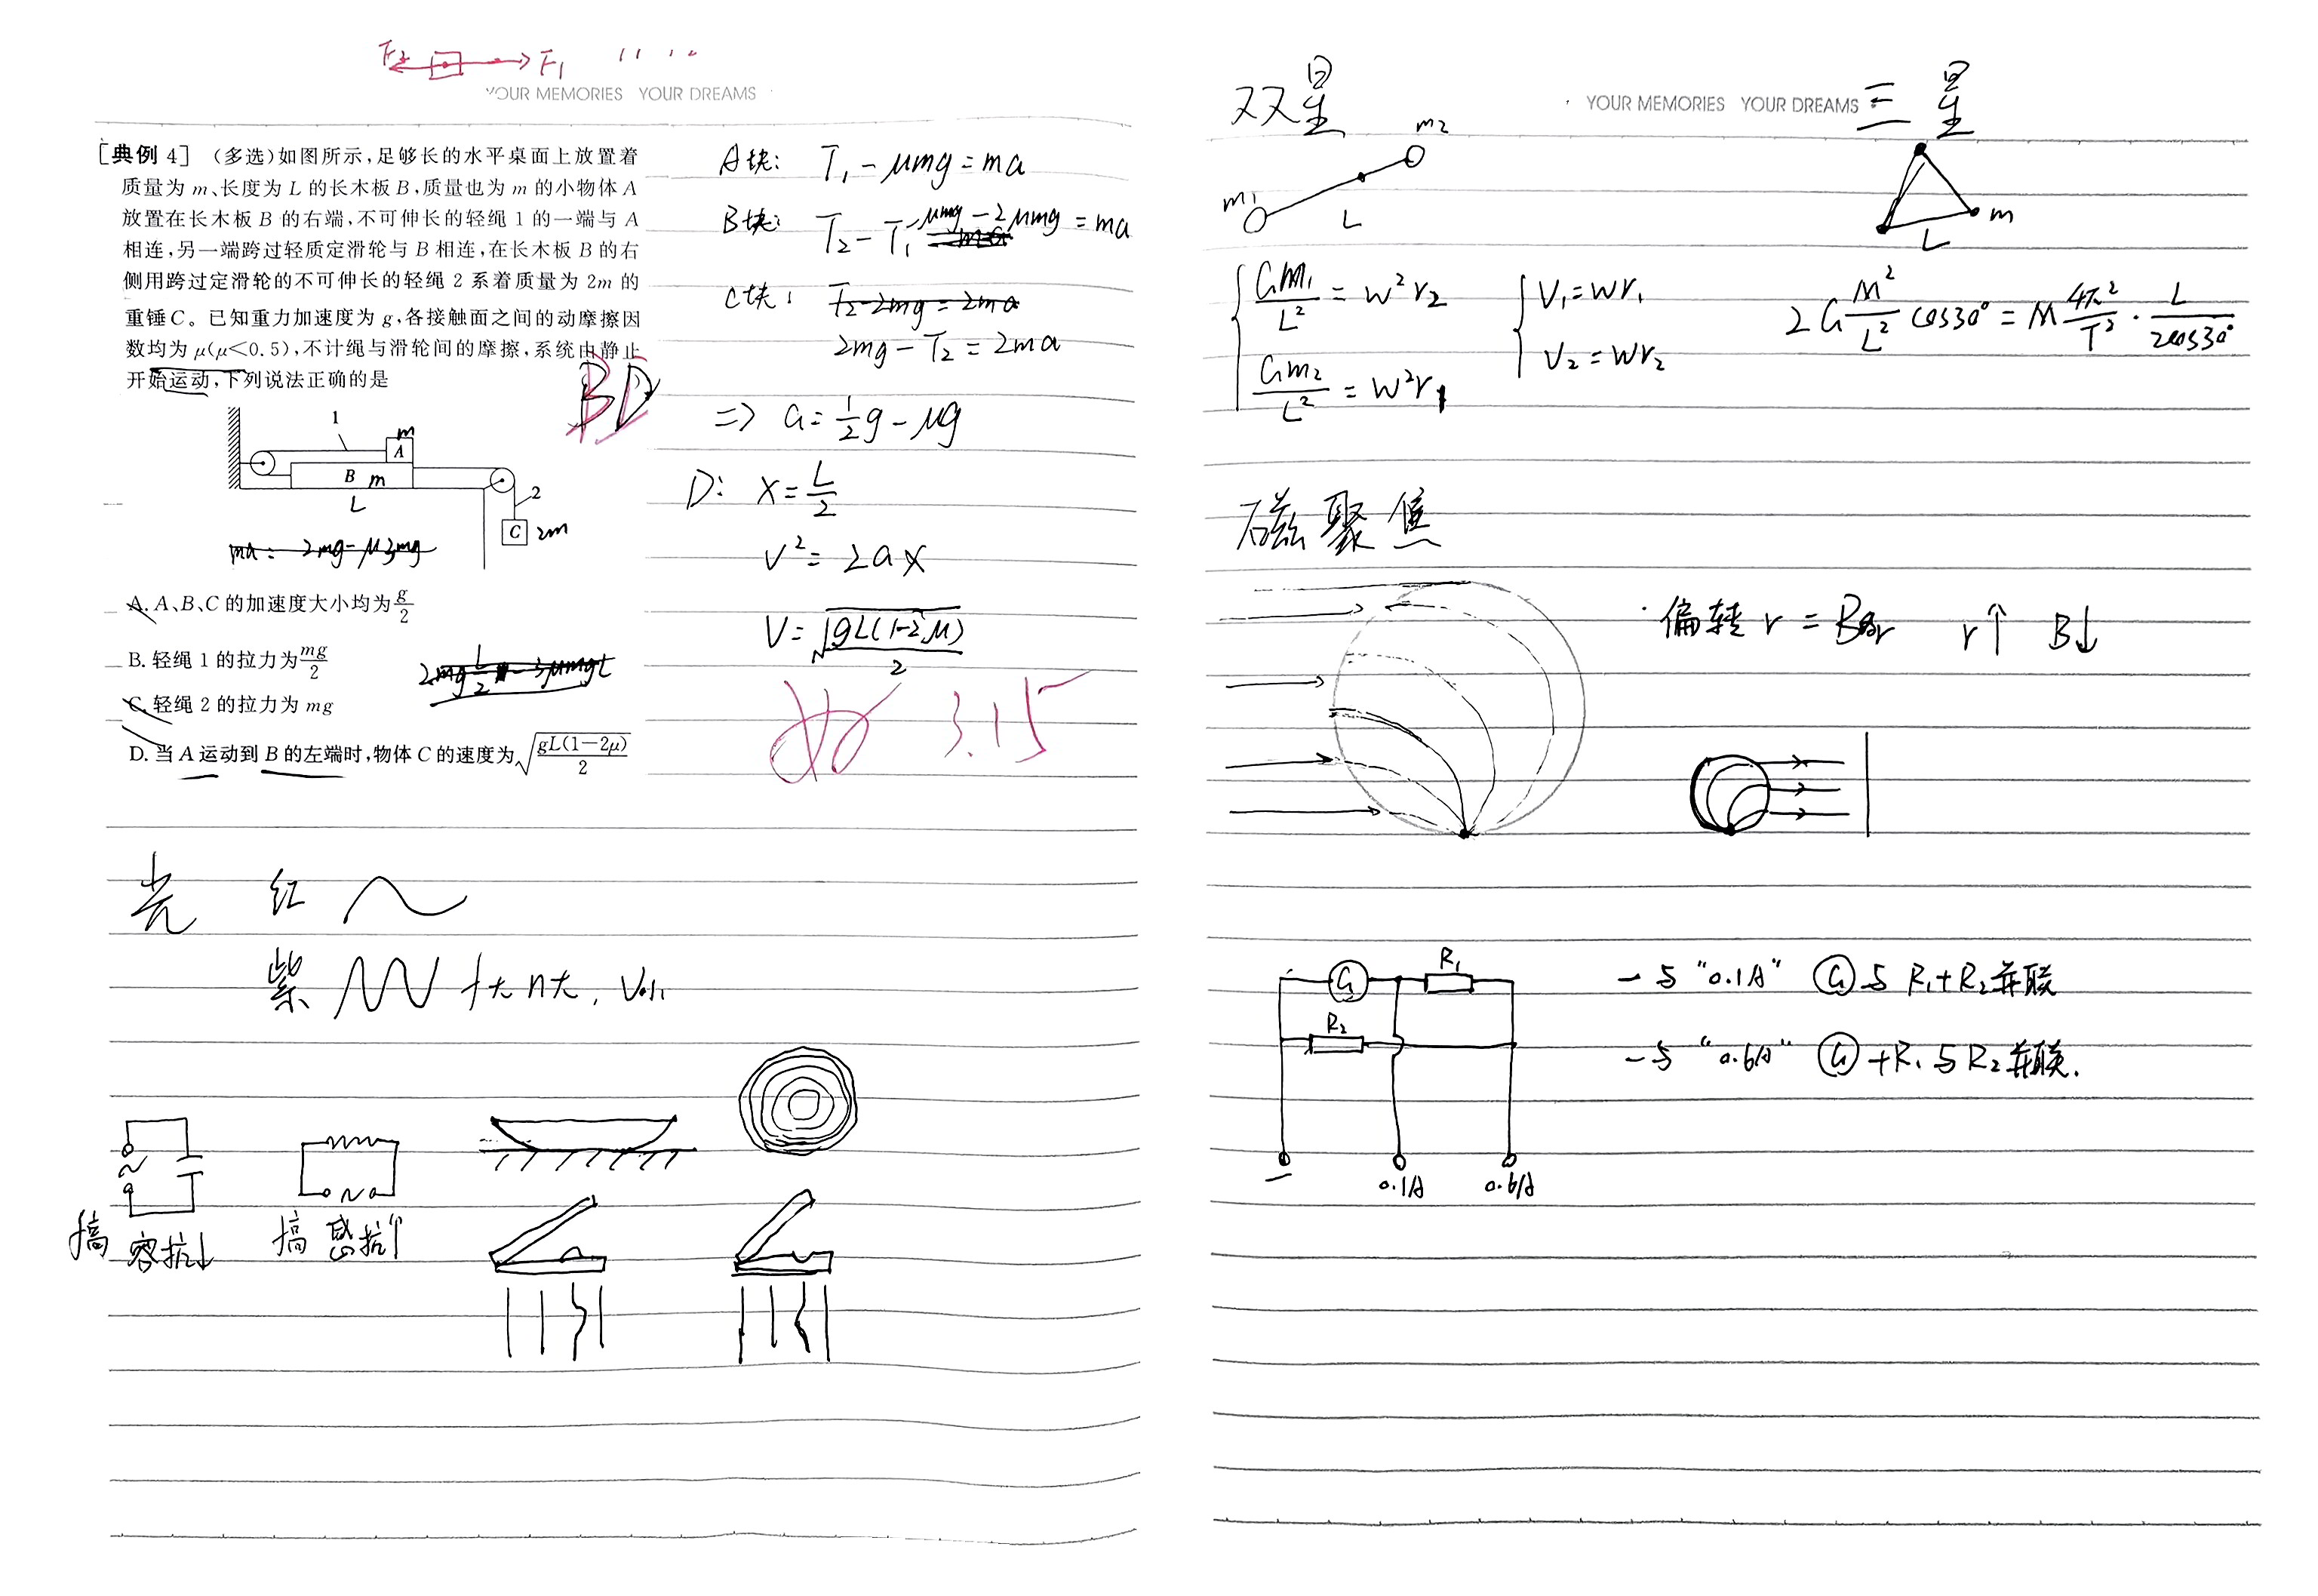 F₂ F₁
YOUR MEMORIES YOUR DREAMS
[典例 4] (多选)如图所示,足够长的水平桌面上放置着
质量为 m、长度为 L 的长木板 B,质量也为 m 的小物体 A
放置在长木板 B 的右端,不可伸长的轻绳 1 的一端与 A
相连,另一端跨过轻质定滑轮与 B 相连,在长木板 B 的右
侧用跨过定滑轮的不可伸长的轻绳 2 系着质量为 2m 的
重锤 C。已知重力加速度为 g,各接触面之间的动摩擦因
数均为 μ(μ<0.5),不计绳与滑轮间的摩擦,系统由静止
开始运动,下列说法正确的是
BD
1
m
A
B m
L
2
C 2m
ma = 2mg-μ3mg
A. A、B、C 的加速度大小均为 g/2
B. 轻绳 1 的拉力为 mg/2
C. 轻绳 2 的拉力为 mg
D. 当 A 运动到 B 的左端时,物体 C 的速度为 √(gL(1-2μ)/2)
A块: T₁-μmg=ma
B块: T₂-T₁ μmg-2μmg=ma
C块: T₂-2mg=2ma
2mg-T₂=2ma
=> a=½g-μg
D: x=L/2
V²=2ax
V=√(gL(1-2μ)/2)
3.15
光 红
紫 f大 n大, V小
搞 容抗↓
搞 感抗↑
双星
YOUR MEMORIES YOUR DREAMS
三星
m₂
m₁
L
m
L
Gm₁/L²=w²r₂
V₁=wr₁
2G M²/L² cos30°=M 4π²/T²·L/2cos30°
V₂=wr₂
Gm₂/L²=w²r₁
磁聚焦
偏转 r = r↑ B↓
G R₁
R₂
- 0.1A 0.6A
-与"0.1A" G与 R₁+R₂并联
-与"0.6A" G+R₁与R₂并联.